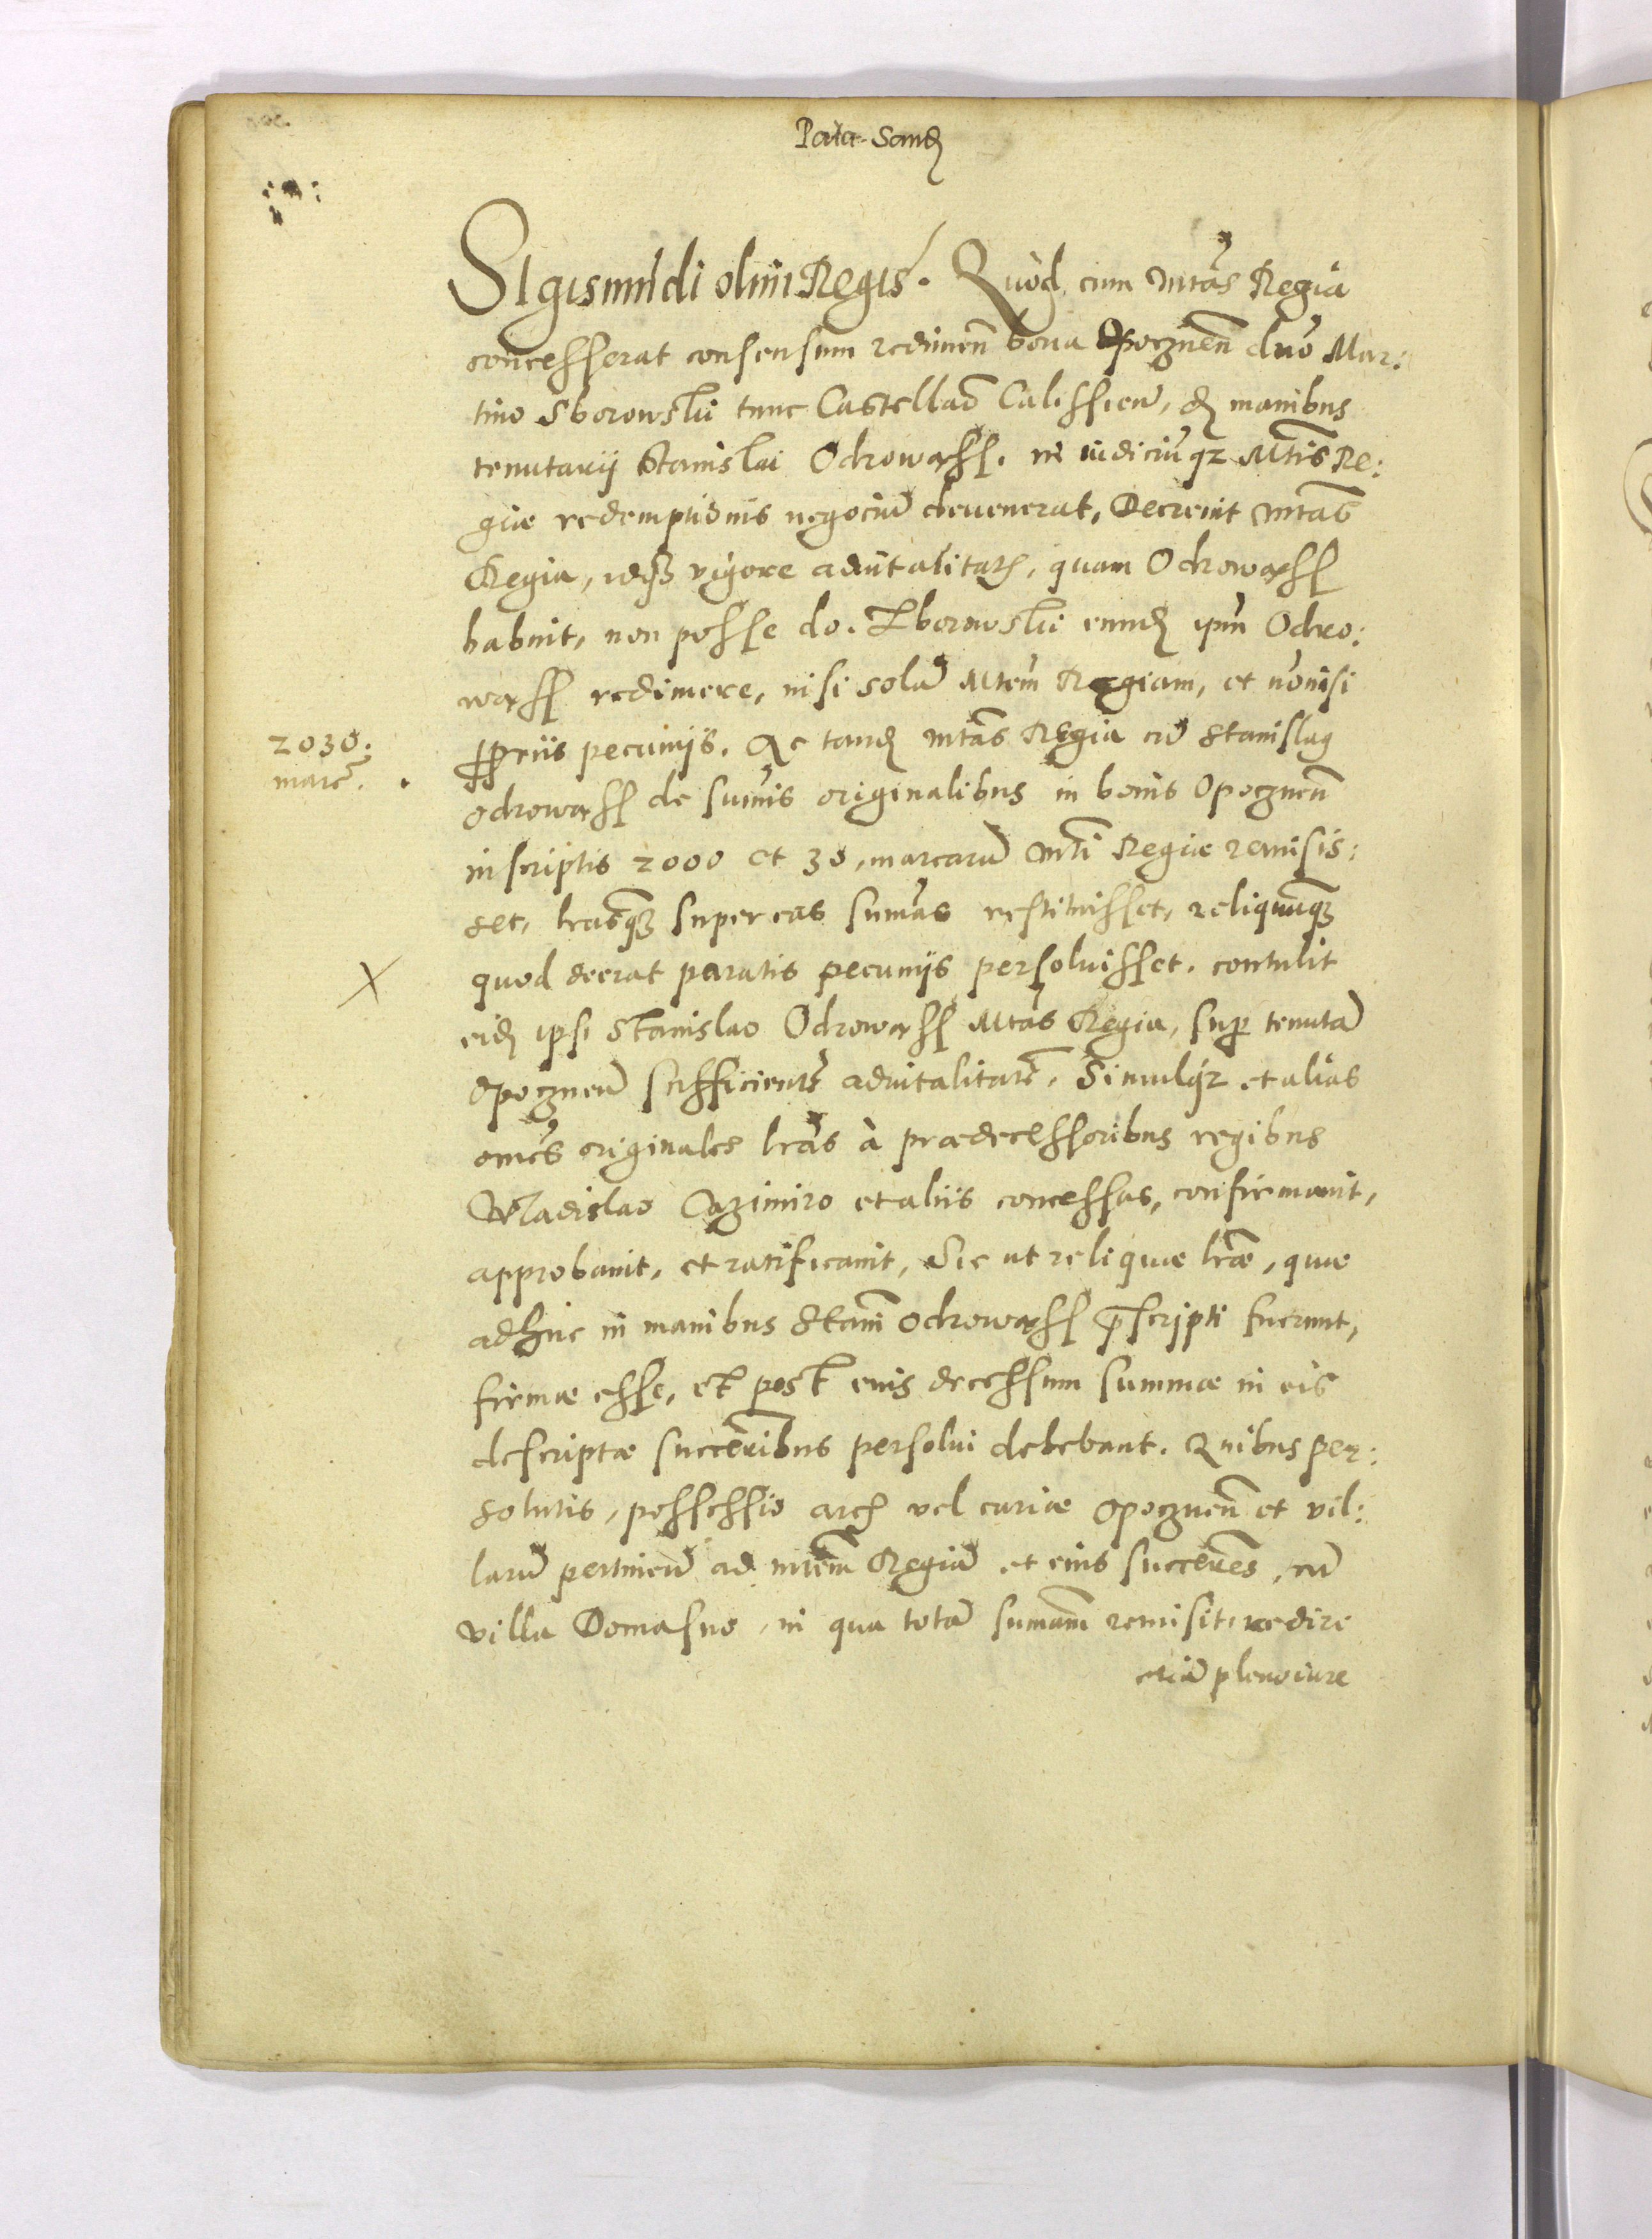 Pala: Sand
Sigismūdi olim Regis. Quod cum Mtas Regia
concesserat consensum redimen̄ bona Opocznen̄ dn̄o Mar:
tino Sborowskii tunc Castellāo Calissien̄, de manibus
tenutarij Stanislai Odrowąsſ. in iudiciūqz Mtis Re:
giæ redemptionis negociū deuenerat, Decreuit Mtas
Regia, vigore aduitalitatis, quam Odrowąsſ
habuit, non posse do. Zborowskii eund ipm̄ Odro:
wąsſ redimere, nisi solā Mtem̄ Regiam, et nōnisi
ꝓpriis pecunijs. Ac tand Mtas Regia cū Stanislao
Odrowąsſ de sum̄is originalibus in bonis Opocznen̄
inscriptis 2000 et 30, marcarū Mti Regiæ remisis:
set, lrasqꝫ super eas sum̄as restituisset, reliquūqꝫ
quod deerat paratis pecunijs persoluisset. contulit
eid ipsi Stanislao Odrowąsſ Mtas Regia, suꝑ tenutā
Opocznen̄ sufficientē aduitalitatē. Simulqz et alias
om̄es originales lras à prædecessoribus regibus
Wladislao Cazimiro et aliis concessas, confirmauit,
approbauit, et ratificauit, Sic ut reliquæ lræ, quæ
adhuc in manibus Stani Odrowąsſ p̄scripti fuerunt,
firmæ esse, et post eius decessum summæ in eis
descriptæ succēribus persolui debebant. Quibus per:
solutis, possessio arcis vel curiæ Opocznen̄ et vil:
larū pertinen̄ ad Mtem̄ Regiā et eius succēres, cū
villa Domasno, in qua totā sumam̄ remisit, redire
etiā pleno iure
2030.
marc̄.
X